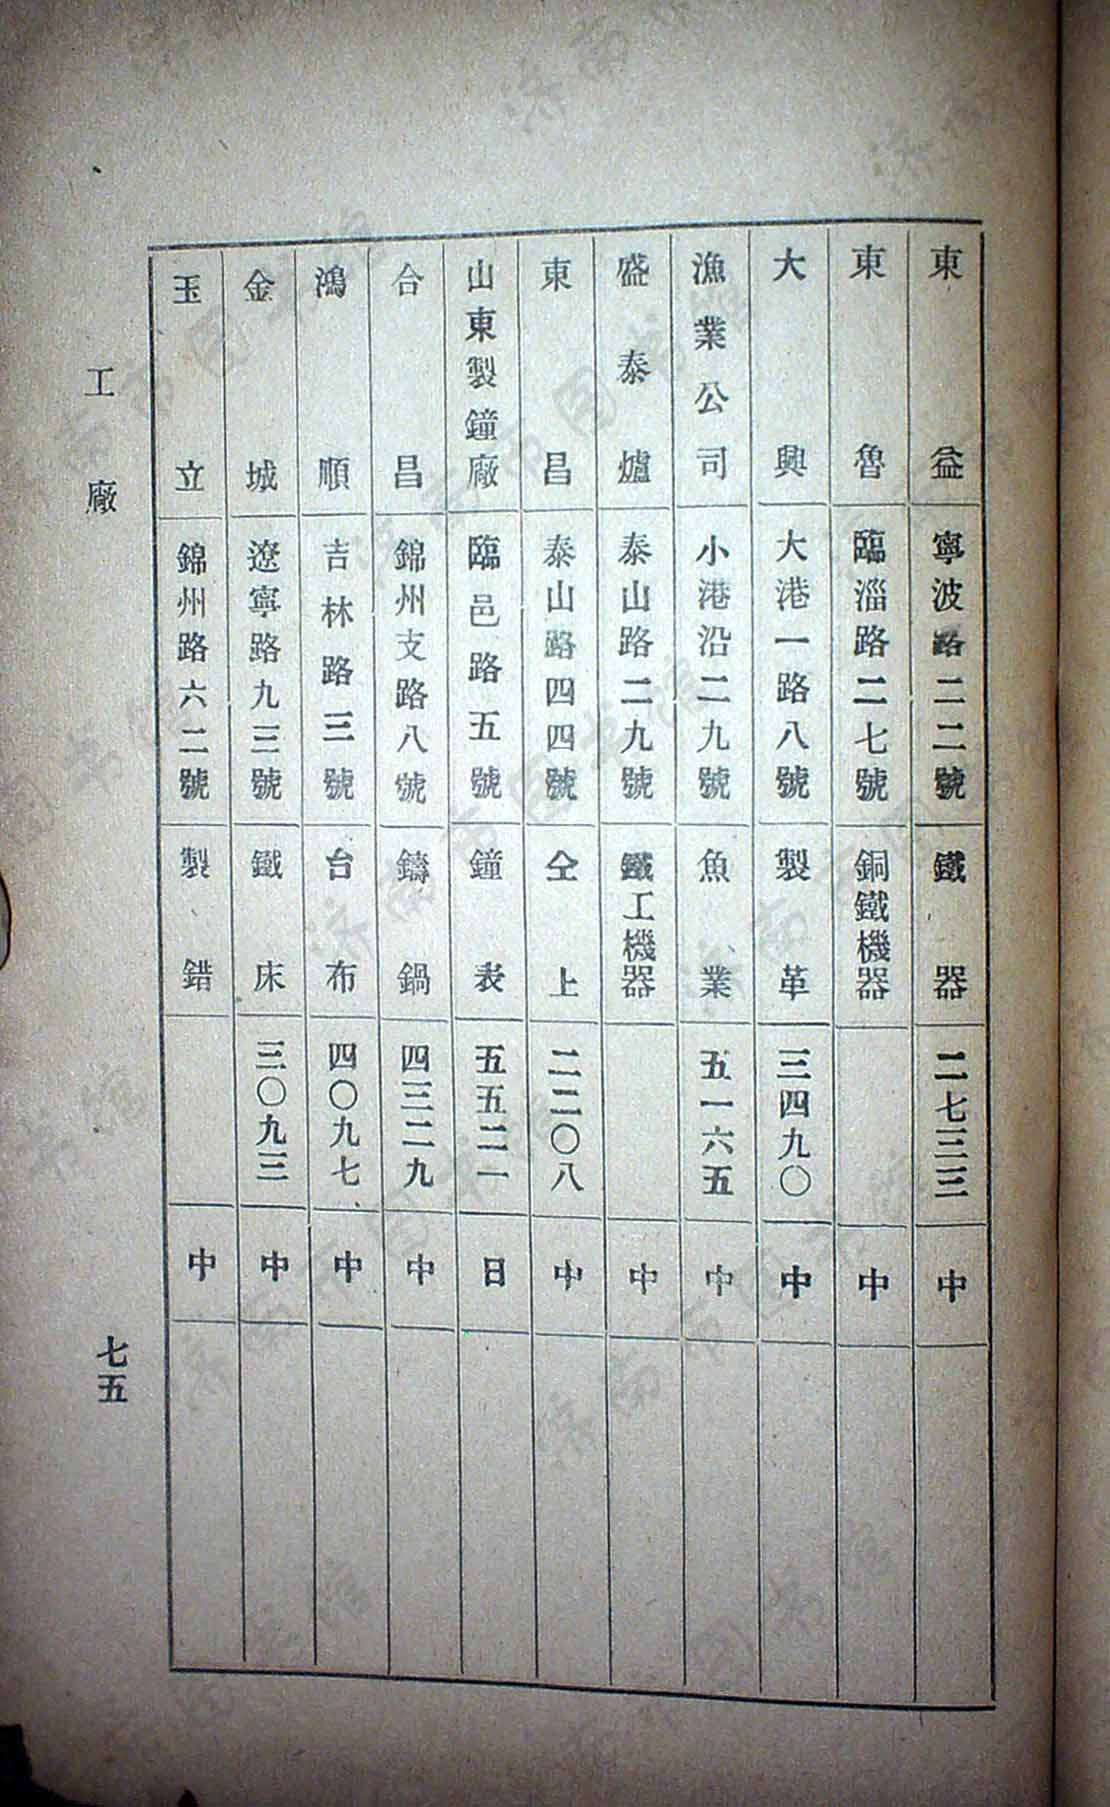 東益 寧波路二二號 鐵器 二七三三 中
東魯 臨淄路二七號 銅鐵機器 中
大興 大港一路八號 製革 三四九〇 中
漁業公司 小港沿二九號 魚業 五一六五 中
盛泰爐 泰山路二九號 鐵工機器 中
東昌 泰山路四四號 仝上 二二〇八 中
山東製鐘廠 臨邑路五號 鐘表 五五二一 日
合昌 錦州支路八號 鑄鍋 四三二九 中
鴻順 吉林路三號 台布 四〇九七 中
金城 遼寧路九三號 鐵床 三〇九三 中
玉立 錦州路六二號 製錯 中
工廠
七五
济南市图书馆